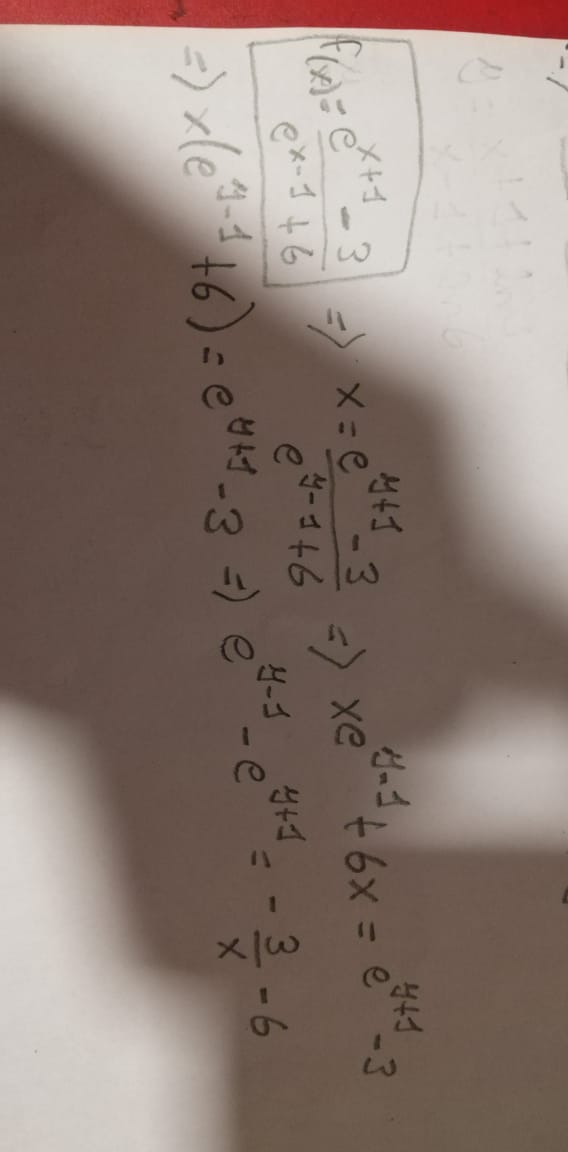 f(x) = (e^(x+1) - 3)/(e^(x-1) + 6) => x = (e^(y+1) - 3)/(e^(y-1) + 6) => xe^(y-1) + 6x = e^(y+1) - 3
=> x(e^(y-1) + 6) = e^(y+1) - 3 => e^(y-1) - e^(y+1) = - 3/x - 6